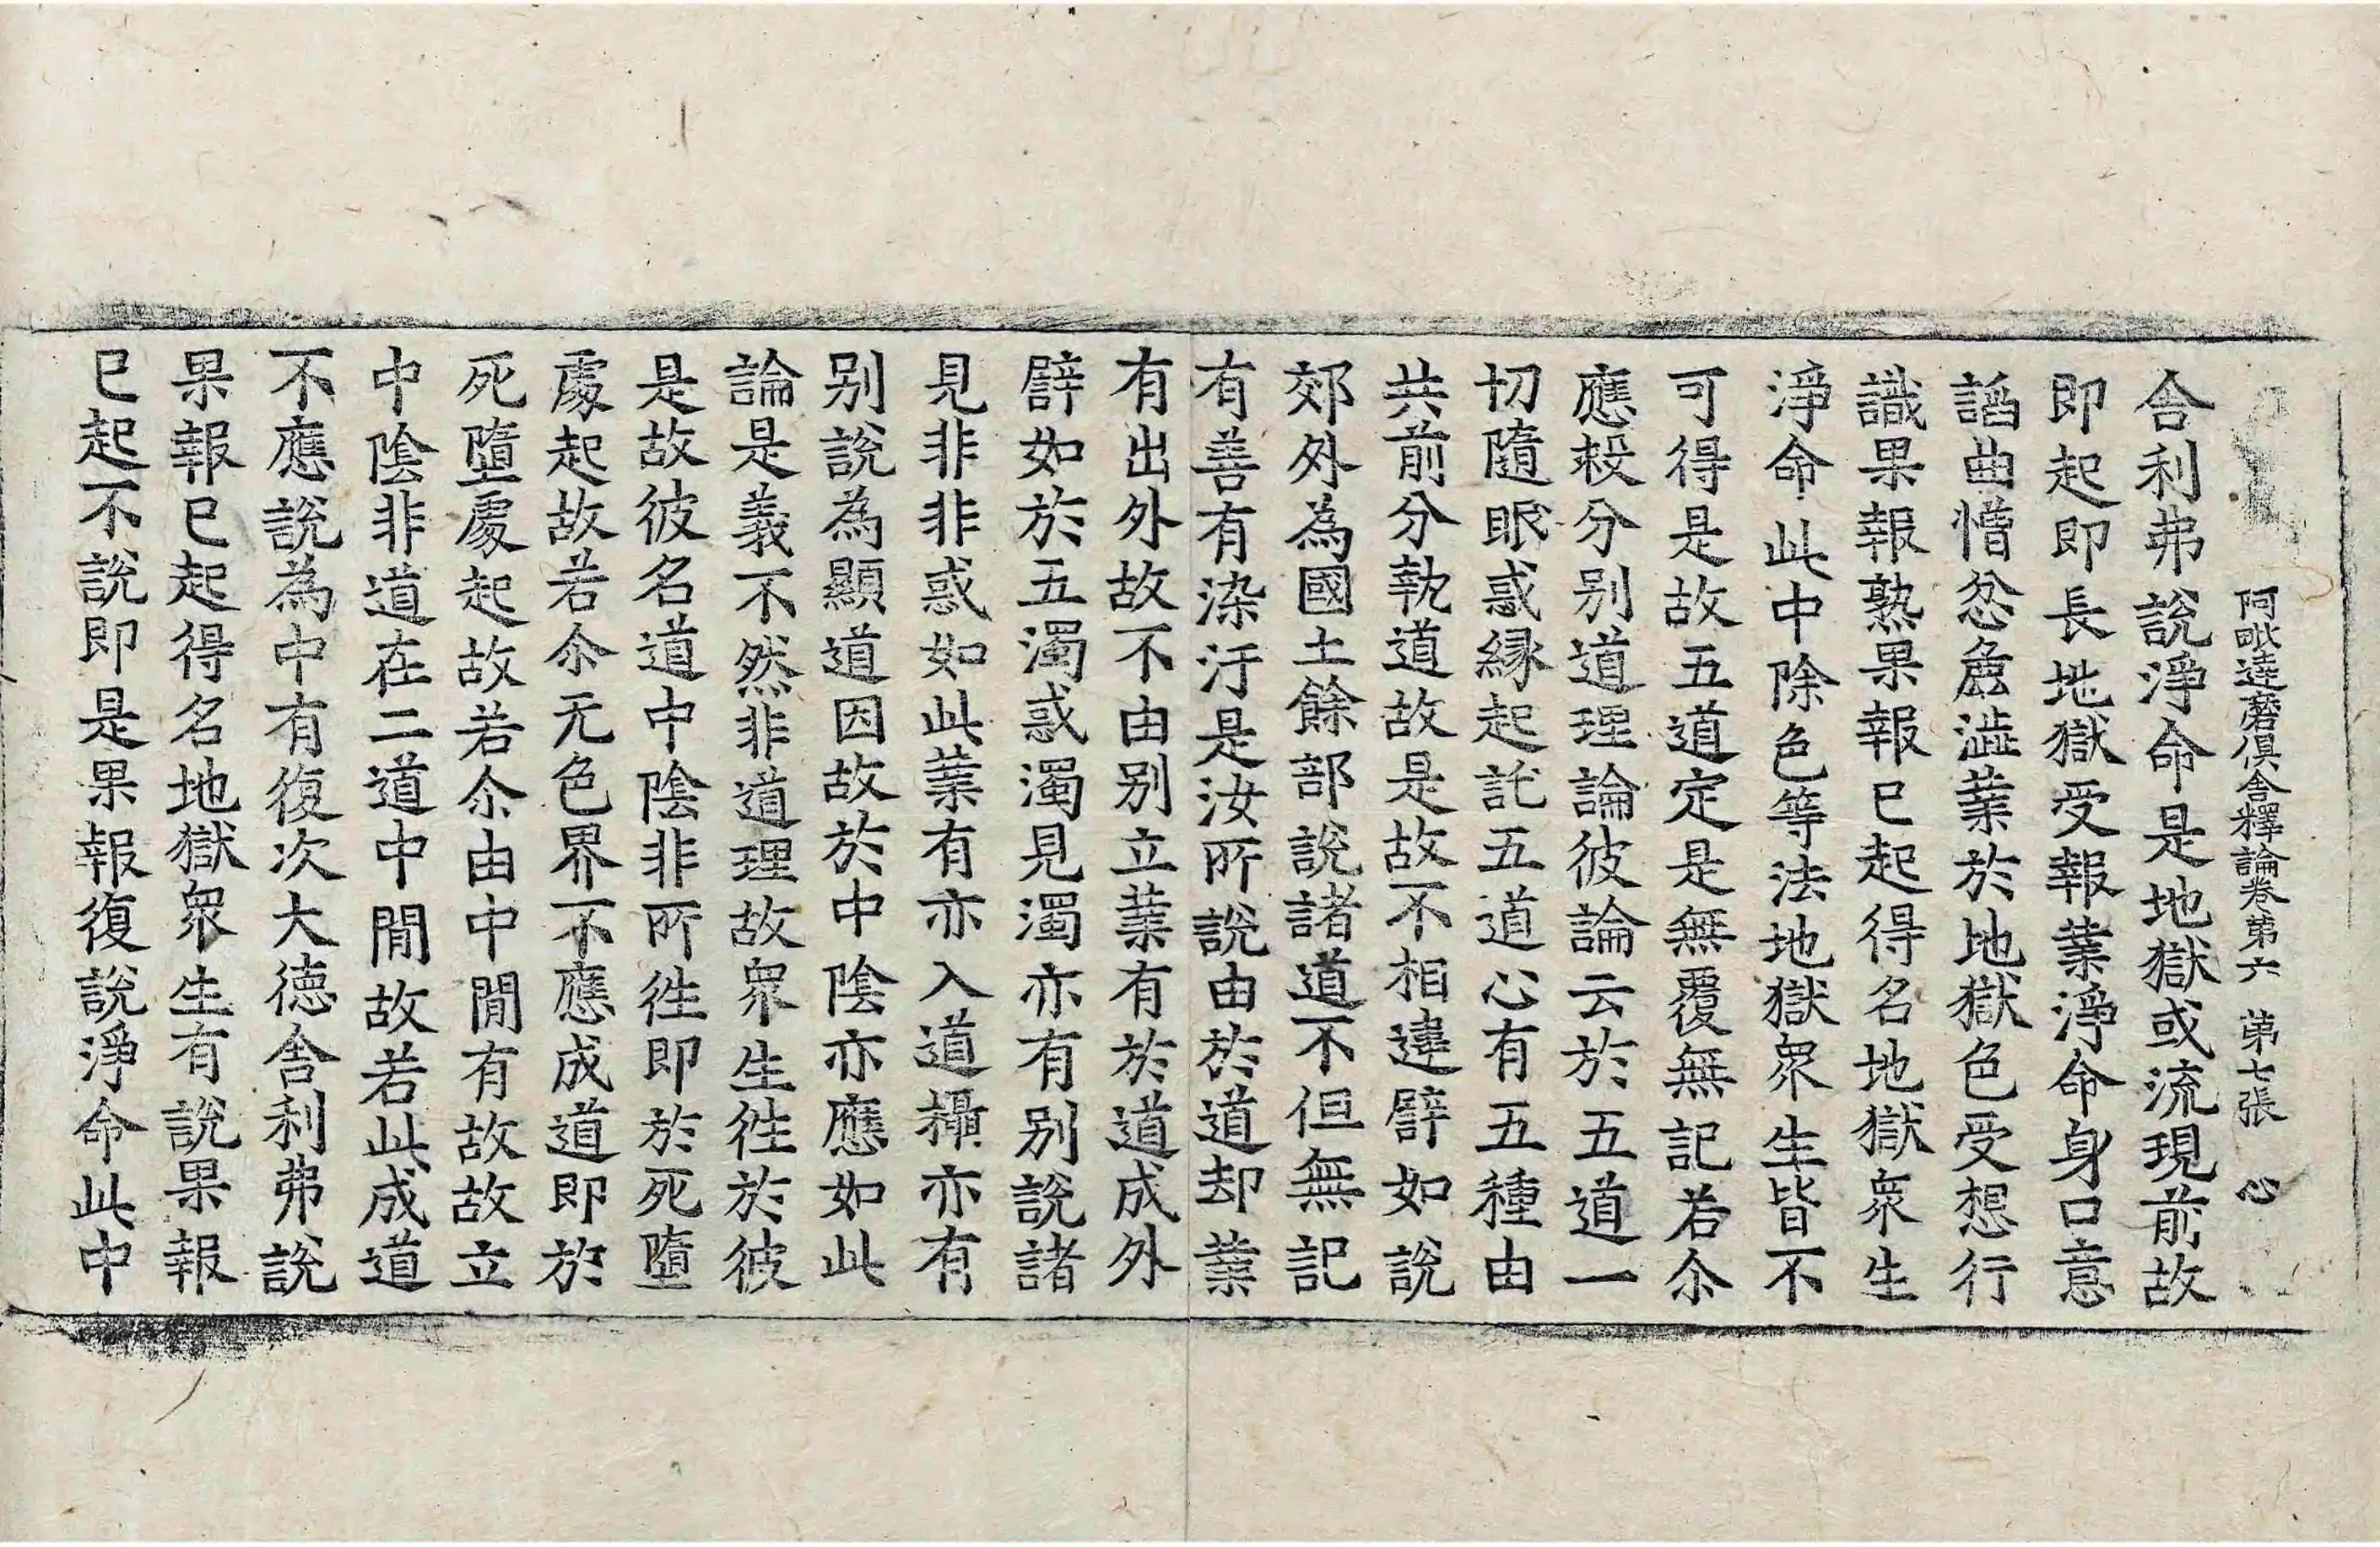 阿毗達磨俱舍釋論卷第六 第七張 心
舎利弗說淨命是地獄或流現前故
即起即長地獄受報業淨命身口意
謟曲憎忿麁澁業於地獄色受想行
識果報熟果報已起得名地獄衆生
淨命此中除色等法地獄衆生皆不
可得是故五道定是無覆無記若尒
應救分别道理論彼論云於五道一
切隨眠惑縁起託五道心有五種由
共前分執道故是故不相違譬如說
郊外為國土餘部說諸道不但無記
有善有染汙是汝所說由於道却業
有出外故不由别立業有於道成外
譬如於五濁惑濁見濁亦有别說諸
見非非惑如此業有亦入道攝亦有
别說為顯道因故於中陰亦應如此
論是義不然非道理故衆生徃於彼
是故彼名道中陰非所徃即於死墮
處起故若尒无色界不應成道即於
死墮處起故若尒由中間有故故立
中陰非道在二道中間故若此成道
不應說為中有復次大德舎利弗說
果報已起得名地獄衆生有說果報
已起不說即是果報復說淨命此中